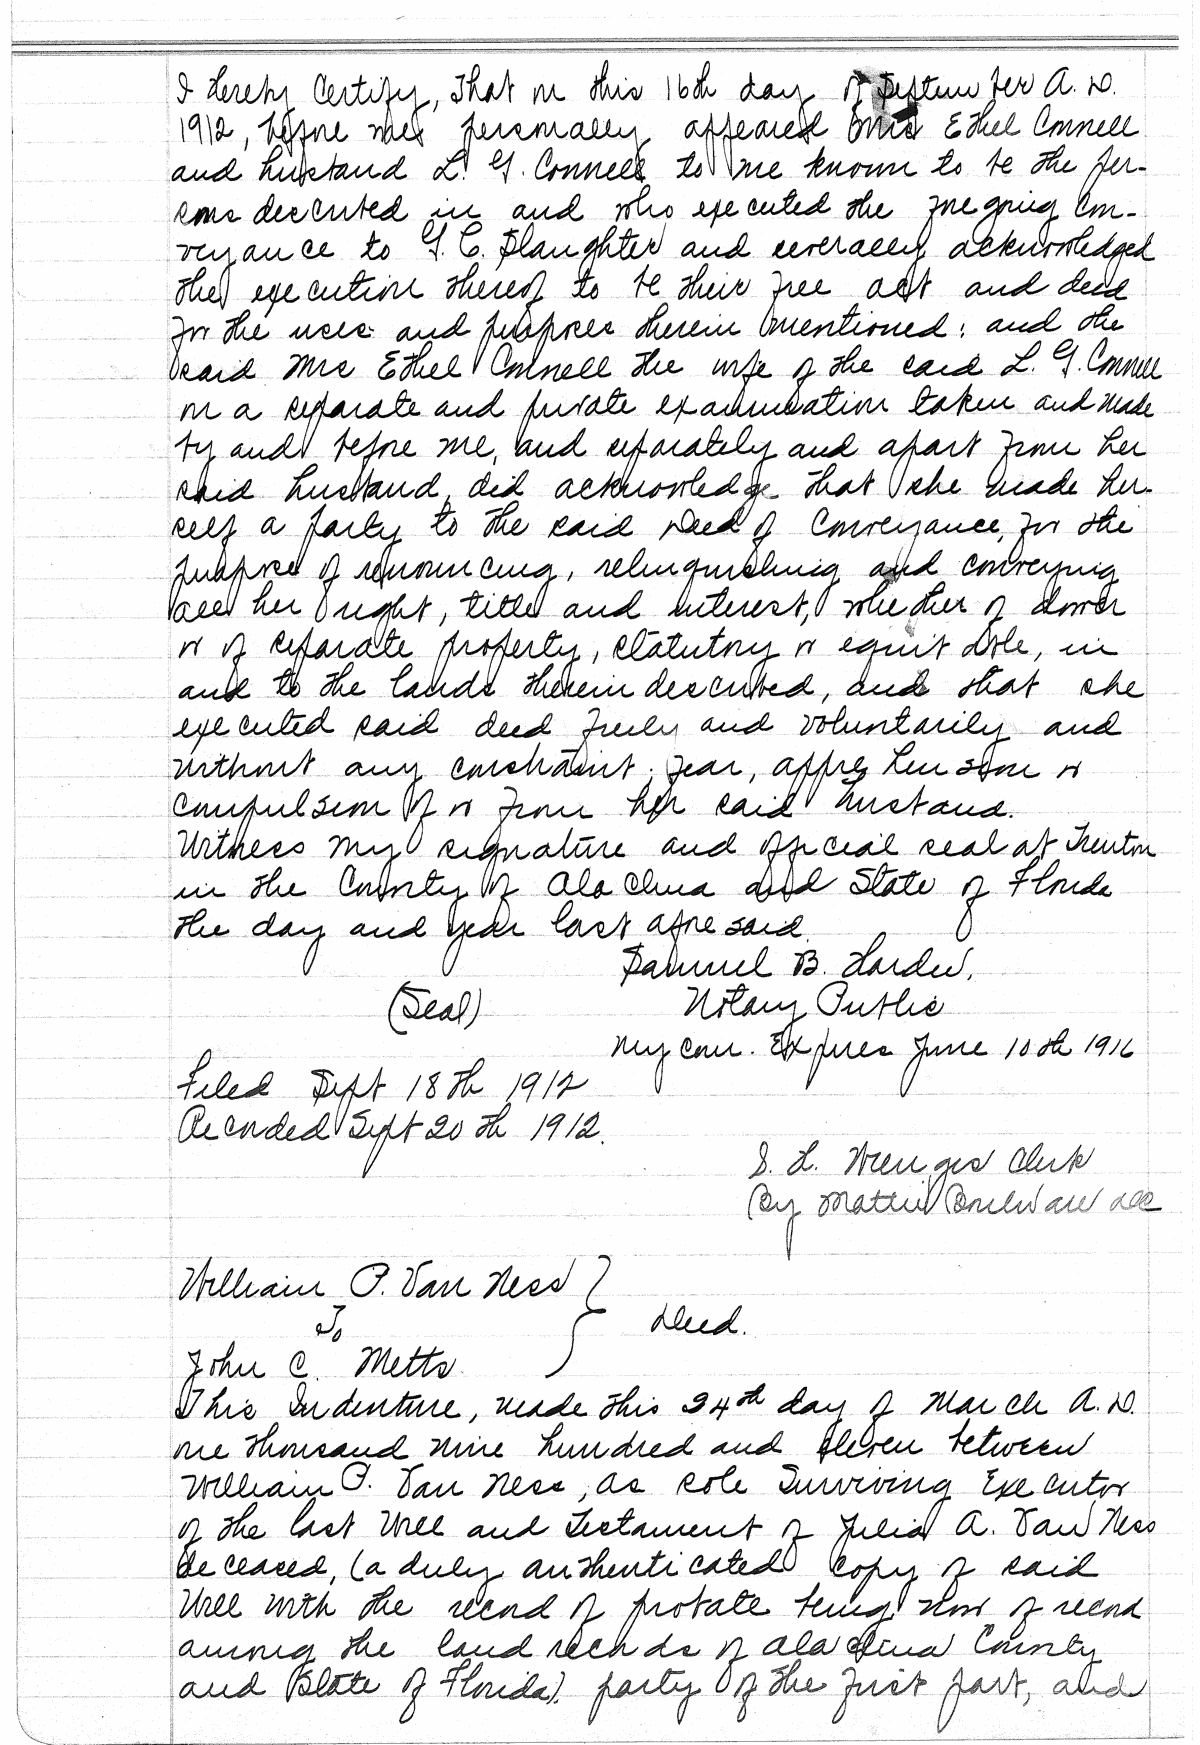 I hereby Certify, That on this 16th day of September A.D.
1912, before me personally appeared Mrs Ethel Connell
and husband L. G. Connell to me known to be the per-
sons described in and who executed the foregoing Con-
veyance to G. C. Slaughter and severally acknowledged
the execution thereof to be their free act and deed
for the uses and purposes therein mentioned; and the
said Mrs Ethel Connell the wife of the said L. G. Connell
on a separate and private examination taken and made
by and before me, and separately and apart from her
said husband, did acknowledge that she made her-
self a party to the said Deed of Conveyance, for the
purpose of renouncing, relinquishing and conveying
all her right, title and interest, whether of dower
or of separate property, statutory or equitable, in
and to the lands therein described, and that she
executed said deed freely and voluntarily and
without any constraint, fear, apprehension or
compulsion of or from her said husband.
Witness my signature and official seal at Trenton
in the County of Alachua and State of Florida
the day and year last aforesaid.
Samuel B. Harder,
(Seal) Notary Public
My com. Expires June 10th 1916
Filed Sept 18th 1912
Recorded Sept 20th 1912.
S. H. Wienges Clerk
By Mattie DC
William P. Van Ness
To Deed.
John C. Metts
This Indenture, made this 24th day of March A.D.
one thousand nine hundred and eleven between
William P. Van Ness, as sole Surviving Executor
of the last Will and Testament of Julia A. Van Ness
deceased, (a duly authenticated copy of said
Will with the record of probate being now of record
among the land records of Alachua County
and State of Florida), party of the first part, and